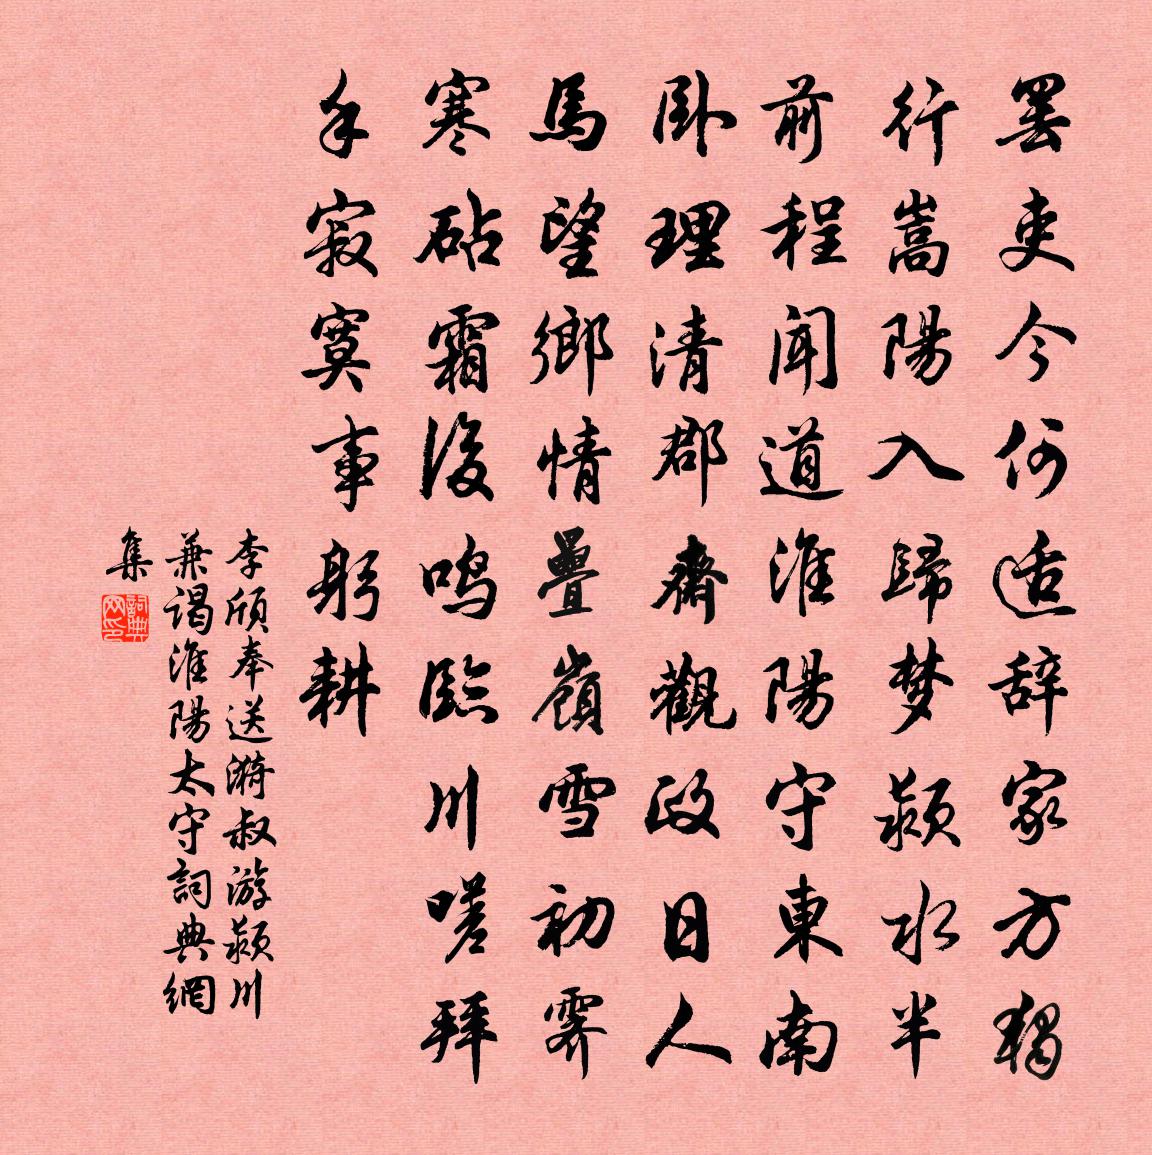 罢吏今何适辞家方独
行嵩陽入歸梦颍水半
前程闻道淮陽守東南
卧理清郡齋觀政日人
馬望鄉情疊嶺雪初霽
寒砧霜後鸣臨川嗟拜
手寂寞事躬耕
李颀奉送漪叔游颍川
兼谒淮陽太守詞典網
集
詞典网印